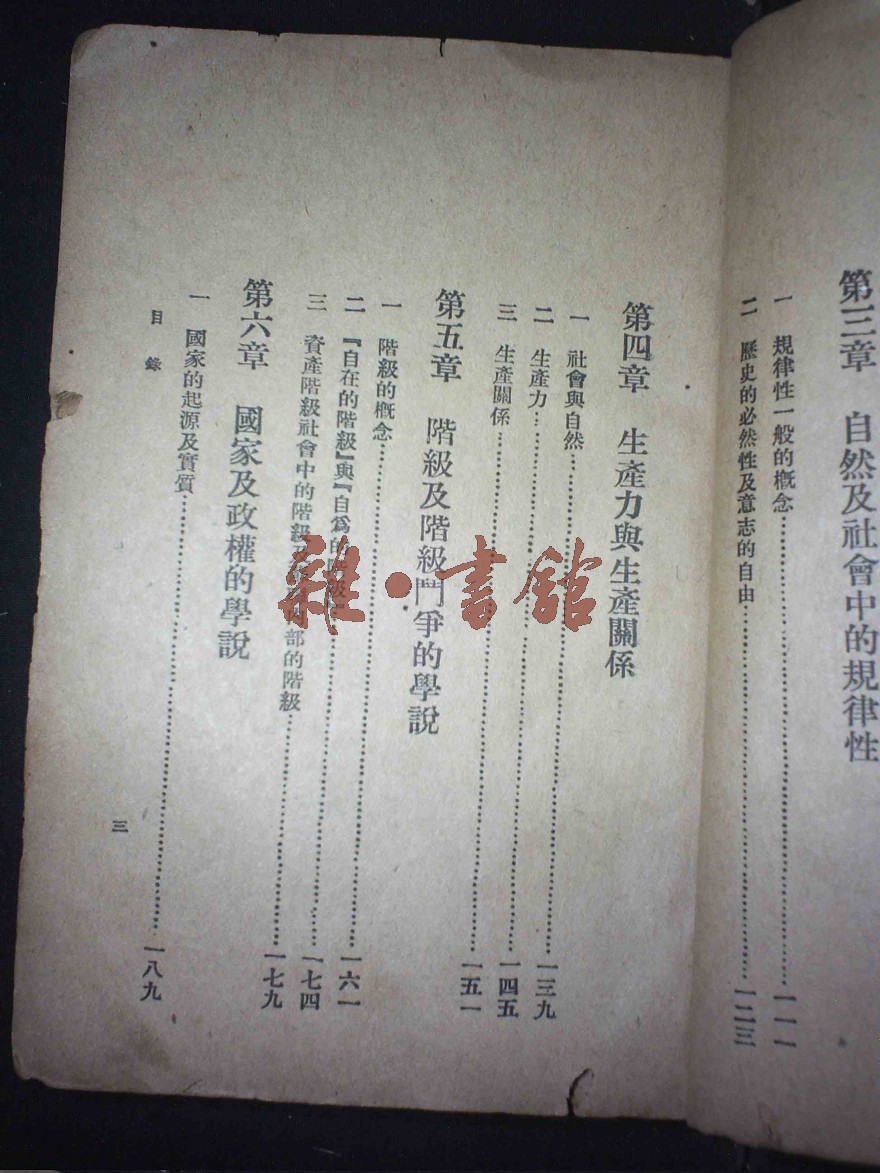 第三章 自然及社會中的規律性
一 規律性一般的概念……一一一
二 歷史的必然性及意志的自由……一二三
第四章 生產力與生產關係
一 社會與自然……一三九
二 生產力……一四五
三 生產關係……一五一
第五章 階級及階級鬥爭的學說
一 階級的概念……一六一
二 『自在的階級』與『自爲的階級』……一七四
三 資產階級社會中的階級及部的階級……一七九
第六章 國家及政權的學說
一 國家的起源及實質……一八九
目錄
三
雜·書館